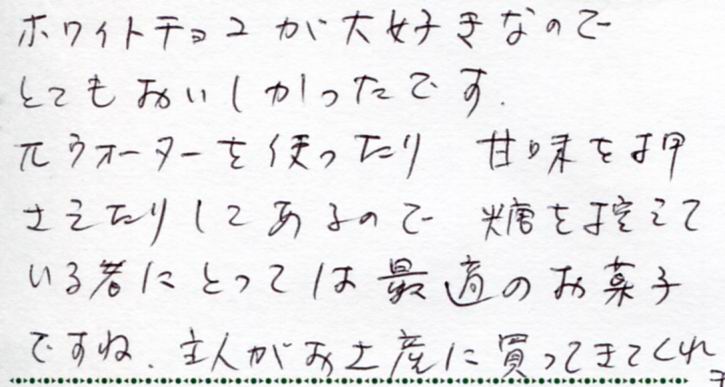 ホワイトチョコが大好きなので
とてもおいしかったです.
πウォーターを使ったり 甘味を押
さえたりしてあるので 糖を控えて
いる者にとっては最適のお菓子
ですね. 主人がお土産に買ってきてくれ